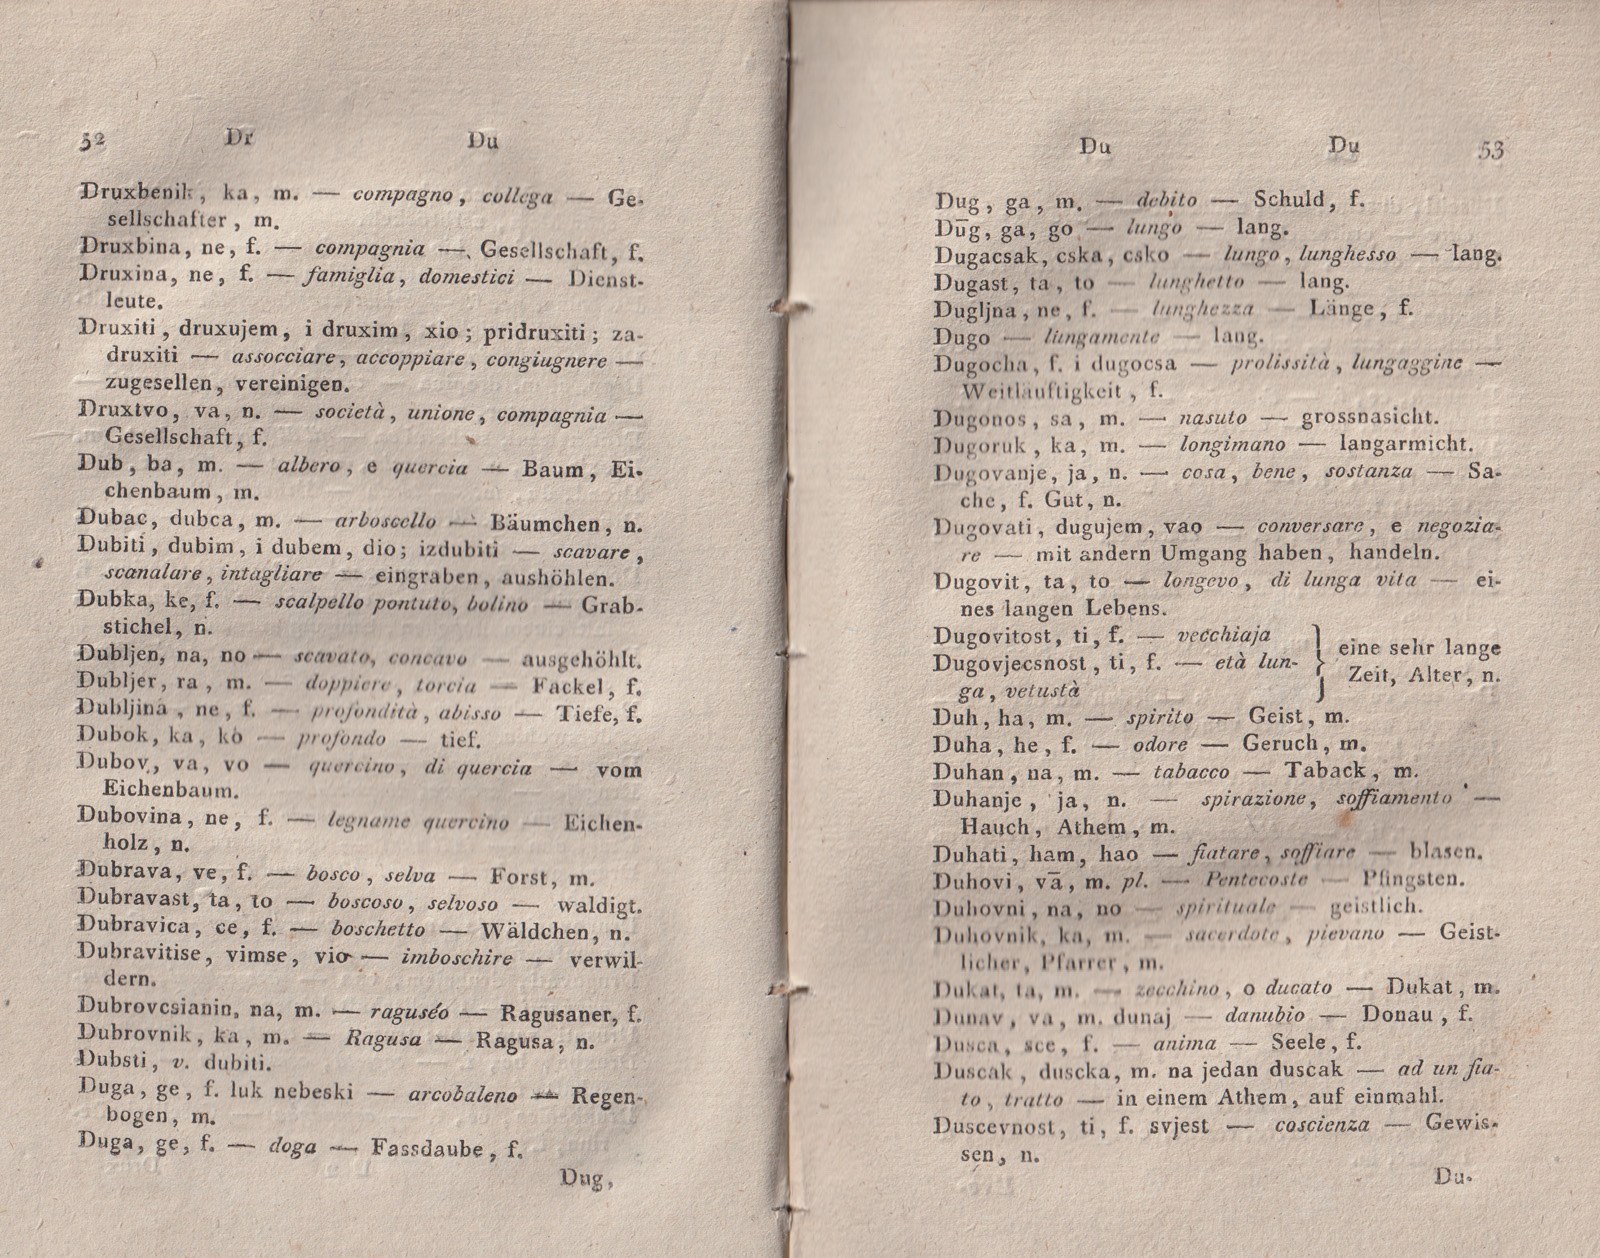 52 Dr Du
Druxbenik, ka, m. — compagno, collega — Ge-
sellschafter, m.
Druxbina, ne, f. — compagnia — Gesellschaft, f.
Druxina, ne, f. — famiglia, domestici — Dienst-
leute.
Druxiti, druxujem, i druxim, xio; pridruxiti; za-
druxiti — assocciare, accoppiare, congiugnere —
zugesellen, vereinigen.
Druxtvo, va, n. — società, unione, compagnia —
Gesellschaft, f.
Dub, ba, m. — albero, e quercia — Baum, Ei-
chenbaum, m.
Dubac, dubca, m. — arboscello — Bäumchen, n.
Dubiti, dubim, i dubem, dio; izdubiti — scavare,
scanalare, intagliare — eingraben, aushöhlen.
Dubka, ke, f. — scalpello pontuto, bolino — Grab-
stichel, n.
Dubljen, na, no — scavato, concavo — ausgehöhlt.
Dubljer, ra, m. — doppiere, torcia — Fackel, f.
Dubljina, ne, f. — profondità, abisso — Tiefe, f.
Dubok, ka, ko — profondo — tief.
Dubov, va, vo — quercino, di quercia — vom
Eichenbaum.
Dubovina, ne, f. — legname quercino — Eichen-
holz, n.
Dubrava, ve, f. — bosco, selva — Forst, m.
Dubravast, ta, to — boscoso, selvoso — waldigt.
Dubravica, ce, f. — boschetto — Wäldchen, n.
Dubravitise, vimse, vio — imboschire — verwil-
dern.
Dubrovcsianin, na, m. — raguséo — Ragusaner, f.
Dubrovnik, ka, m. — Ragusa — Ragusa, n.
Dubsti, v. dubiti.
Duga, ge, f. luk nebeski — arcobaleno — Regen-
bogen, m.
Duga, ge, f. — doga — Fassdaube, f.
Dug,
Du Du 53
Dug, ga, m. — debito — Schuld, f.
Dūg, ga, go — lungo — lang.
Dugacsak, cska, csko — lungo, lunghesso — lang.
Dugast, ta, to — lunghetto — lang.
Dugljna, ne, f. — lunghezza — Länge, f.
Dugo — lungamente — lang.
Dugocha, f. i dugocsa — prolissità, lungaggine —
Weitläuftigkeit, f.
Dugonos, sa, m. — nasuto — grossnasicht.
Dugoruk, ka, m. — longimano — langarmicht.
Dugovanje, ja, n. — cosa, bene, sostanza — Sa-
che, f. Gut, n.
Dugovati, dugujem, vao — conversare, e negozia-
re — mit andern Umgang haben, handeln.
Dugovit, ta, to — longevo, di lunga vita — ei-
nes langen Lebens.
Dugovitost, ti, f. — vecchiaja } eine sehr lange
Dugovjecsnost, ti, f. — età lun- } Zeit, Alter, n.
ga, vetustà
Duh, ha, m. — spirito — Geist, m.
Duha, he, f. — odore — Geruch, m.
Duhan, na, m. — tabacco — Taback, m.
Duhanje, ja, n. — spirazione, soffiamento —
Hauch, Athem, m.
Duhati, ham, hao — fiatare, soffiare — blasen.
Duhovi, vā, m. pl. — Pentecoste — Pfingsten.
Duhovni, na, no — spirituale — geistlich.
Duhovnik, ka, m. — sacerdote, pievano — Geist-
licher, Pfarrer, m.
Dukat, ta, m. — zecchino, o ducato — Dukat, m.
Dunav, va, m. dunaj — danubio — Donau, f.
Dusca, sce, f. — anima — Seele, f.
Duscak, duscka, m. na jedan duscak — ad un fia-
to, tratto — in einem Athem, auf einmahl.
Duscevnost, ti, f. svjest — coscienza — Gewis-
sen, n.
Du-